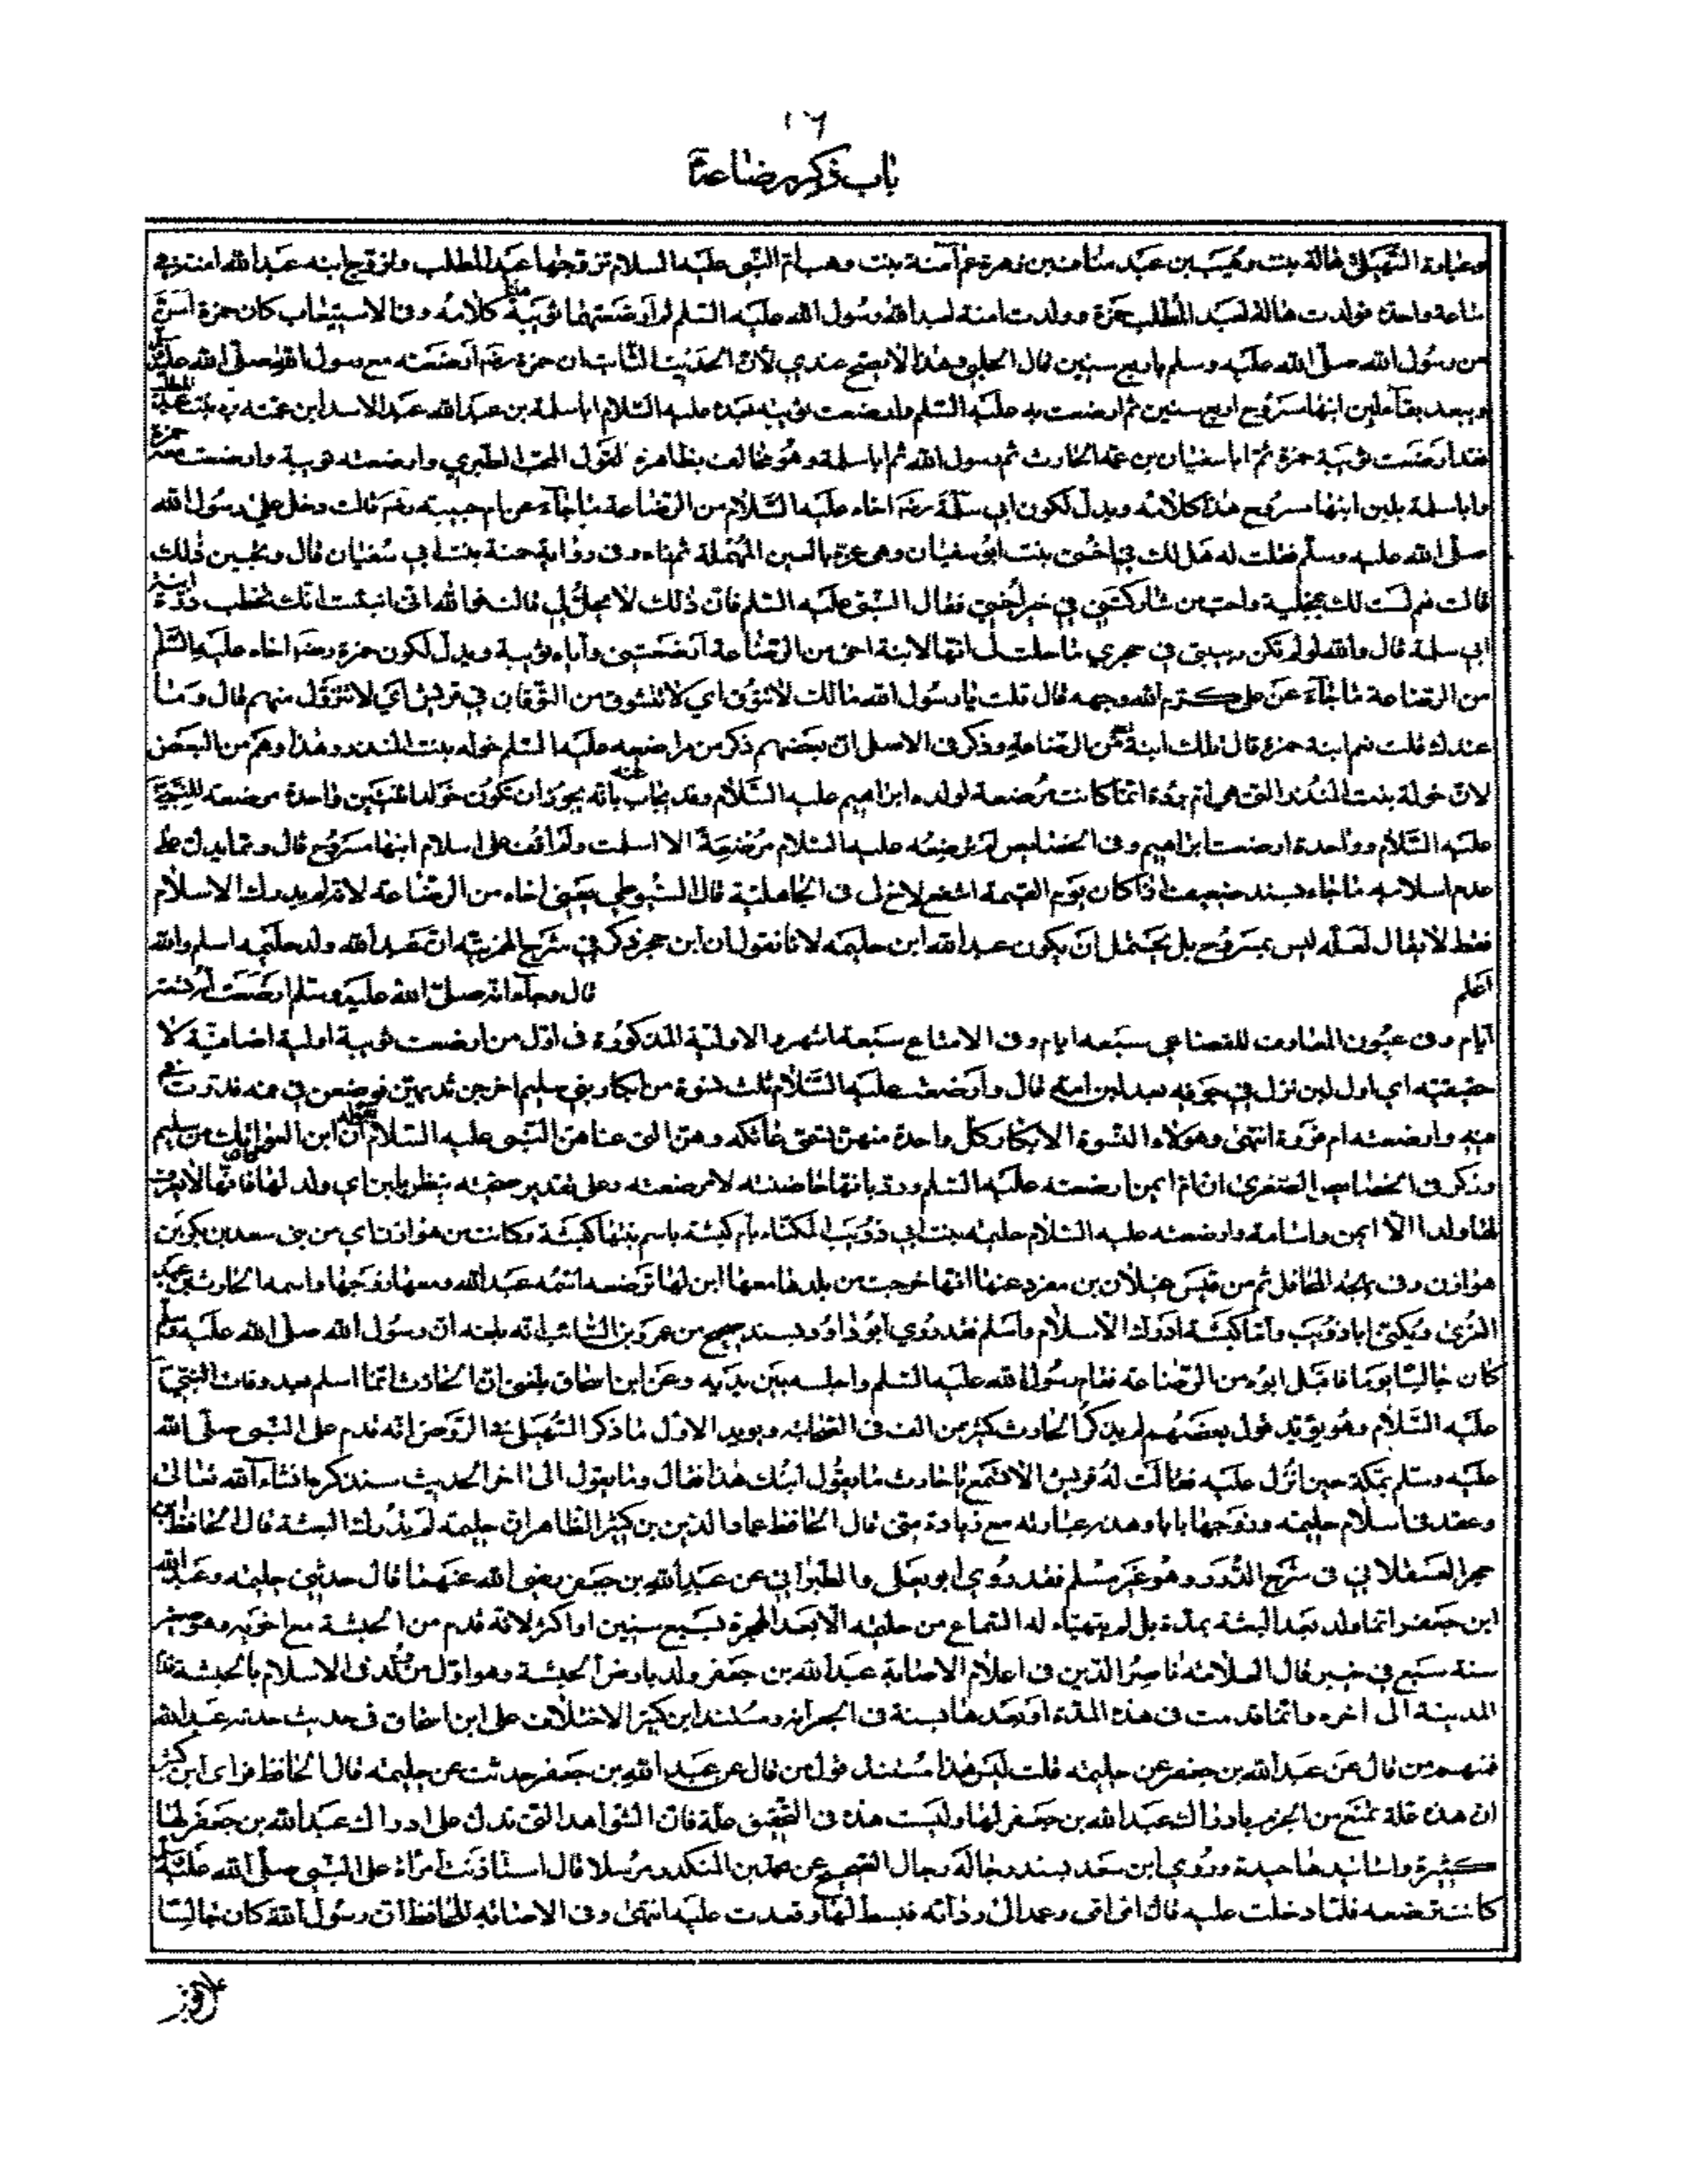 ١٦
باب ذكر رضاعه
وعبارة السهيلي هالة بنت وهيب بن عبد مناف بن زهرة عم آمنة بنت وهب ام النبي عليه السلام تزوجها عبد المطلب وتزوج ابنه عبد الله امنة في
ساعة واحدة فولدت هالة لعبد المطلب حمزة وولدت امنة لعبد الله رسول الله عليه السلم ثم ارضعتهما ثويبة كلامه وفي الاستيعاب كان حمزة اسن
من رسول الله صلى الله عليه وسلم باربع سنين قال الحلبي وهذا لا يصح عندي لان الحديث الثابت ان حمزة رضه ارضعته مع رسول الله صلى الله عليه
اربع سنين ثم ارضعت به عليه السلم وارضعت ثويبة بعده عليه السلام اباسلمة بن عبد الله عبد الاسد ابن عمته
فقد ارضعت ثويبة حمزة ثم اباسفيان بن عمه الحارث ثم رسول الله ثم اباسلمة وهو مخالف بظاهره لقول المحب الطبري وارضعته ثويبة وارضعت معه حمزة
واباسلمة بلبن ابنها مسروح هذا كلامه ويدل لكون ابي سلمة رضه اخاه عليه السلام من الرضاعة ما جاء عن ام حبيبة رضه قالت دخل علي رسول الله
صلى الله عليه وسلم فقلت له هل لك في اختي بنت ابي سفيان وهي عزة بالعين المهملة وفي رواية حمنة بنت ابي سفيان قال وتحبين ذلك
قالت نعم لست لك بمخلية واحب من شاركني في خير اختي فقال النبي عليه السلم فان ذلك لا يحل لي قالت فوالله اني انبئت انك تخطب درة ابنة
ابي سلمة قال والله لو لم تكن ربيبتي في حجري ما حلت لي انها لابنة اخي من الرضاعة ارضعتني واباه ثويبة ويدل لكون حمزة رضه اخاه عليه السلم
من الرضاعة ما جاء عن علي كرم الله وجهه قال قلت يا رسول الله ما لك لا تتوق اي لا تتشوق من التوقان في قريش اي لا تتزوج منهم قال وما
عندك قلت نعم ابنة حمزة قال تلك ابنة اخي من الرضاعة وذكر في الاصل ان بعضهم ذكر من مراضعه عليه السلم خولة بنت المنذر وهذا وهم من البعض
لان خولة بنت المنذر التي هي ام بردة انما كانت مرضعة لولده ابراهيم عليه السلام وقد يجاب عنه بانه يجوز ان تكون خولة اثنتين واحدة مرضعة للنبي
عليه السلام وواحدة ارضعت ابراهيم وفي الخصايص لم ترضعه عليه السلام مرضعة الا اسلمت ولم اقف على اسلام ابنها مسروح قال ومما يدل على
عدم اسلامه ما جاء بسند ضعيف اذا كان يوم القيمة اشفع لاخ لي في الجاهلية قال السيوطي يعني اخاه من الرضاعة لانه لم يدرك الاسلام
فقط لا يقال لعله ليس بمسروح بل يحتمل ان يكون عبد الله ابن حليمه لانا نقول ان ابن حجر ذكر في شرح الهمزيه ان عبد الله ولد حليمه اسلم والله
اعلم قال وجاء انه صلى الله عليه وسلم ارضعت امه تسعة
ايام وفي عيون المعارف للقضاعي سبعة ايام وفي الامتاع سبعة اشهر والاولية المذكورة في اول من ارضعت ثويبة اولية اضافية لا
حقيقته اي اول لبن نزل في جوفه بعد لبن امه قال وارضعت عليه السلام ثلث نسوة من ابكار بني سليم اخرجن ثديهن فوضعن في فمه فدرت في
فيه وارضعته ام فروة انتهى وهولاء النسوة الابكار كل واحدة منهن تسمى عاتكه وهن التي عناهن النبي عليه السلام بقوله انا ابن العواتك من سليم
وذكر في الخصايص الصغرى ان ام ايمن ارضعته عليه السلم ورد بانها حاضنته لا مرضعته وعلى تقدير صحته ينظر بلبن اي ولد لها فانها لا يعرف
لها ولد الا ايمن واسامة وارضعته عليه السلام حليمه بنت ابي ذؤيب المكناة بام كبشة باسم بنتها كبشة وكانت من هوازن اي من بني سعد بن بكر بن
هوازن وفي ثم من قيس عيلان بن مضر وعنها انها خرجت من بلدها معها ابن لها ترضعه اسمه عبد الله ومعها زوجها واسمه الحارث بن عبد
العزى ويكنى اباذؤيب وابا كبشة ادرك الاسلام واسلم فقد روي ابو داود بسند صحيح عن عمرو بن السائب انه بلغه ان رسول الله صلى الله عليه وسلم
كان جالسا يوما فاقبل ابوه من الرضاعة فقام رسول الله عليه السلم واجلسه بين يديه وعن ابن اسحاق بلغني ان الحارث انما اسلم بعد وفات النبي
عليه السلام وهو يؤيد قول بعضهم لم يذكر الحارث كثير من الف في الصحابه ويويد الاول ما ذكر السهيلي في الروض انه قدم على النبي صلى الله
عليه وسلم بمكة حين انزل عليه فقالت له قريش الا تسمع يا حارث ما يقول ابنك هذا فقال وما يقول الى اخر الحديث سنذكره ان شاء الله تعالى
وعقد في اسلام حليمه وزوجها بابا وهذه عبارته مع زيادة مني قال الحافظ عماد الدين بن كثير الظاهر ان حليمه لم تدرك البعثة قال الحافظ ابن
حجر العسقلاني في شرح الدرر وهو غير مسلم فقد روي ابو يعلى والطبراني عن عبد الله بن جعفر رضي الله عنهما قال حدثتني حليمه وعبد الله
ابن جعفر انما ولد بعد البعثة بمدة بل لم يتهياء له السماع من حليمه الا بعد الهجرة بسبع سنين او اكثر لانه قدم من الحبشة مع اخويه وهو صغير
سنة سبع في خيبر قال العلامة ناصر الدين في اعلام الاصابة عبد الله بن جعفر ولد بارض الحبشة وهو اول من ولد في الاسلام بالحبشة
المدينة الى اخره وانما قدمت في هذه المدة او بعدها بسنة في الجعرانه ومستند ابن كثير الاختلاف على ابن اسحاق في حديث حدثه عبد الله
فمنهم من قال عن عبد الله بن جعفر عن حليمه قلت ليس هذا مستند قول من قال عن عبد الله بن جعفر حدثت عن حليمه قال الحافظ فراى ابن كثير
ان هذه علة تمنع من الجزم بادراك عبد الله بن جعفر لها وليست هذه في التحقيق علة فان الشواهد التي تدل على ادراك عبد الله بن جعفر لها
كثيرة واسانيدها جيدة وروي ابن سعد بسند رجاله رجال الصحيح عن محمد بن المنكدر مرسلا قال استاذنت امرأة على النبي صلى الله عليه وسلم
كانت ترضعه فلما دخلت عليه قال امي امي وعمد الى ردائه فبسط لها وقعدت عليه انتهى وفي الاصابه للحافظ ان رسول الله كان جالسا